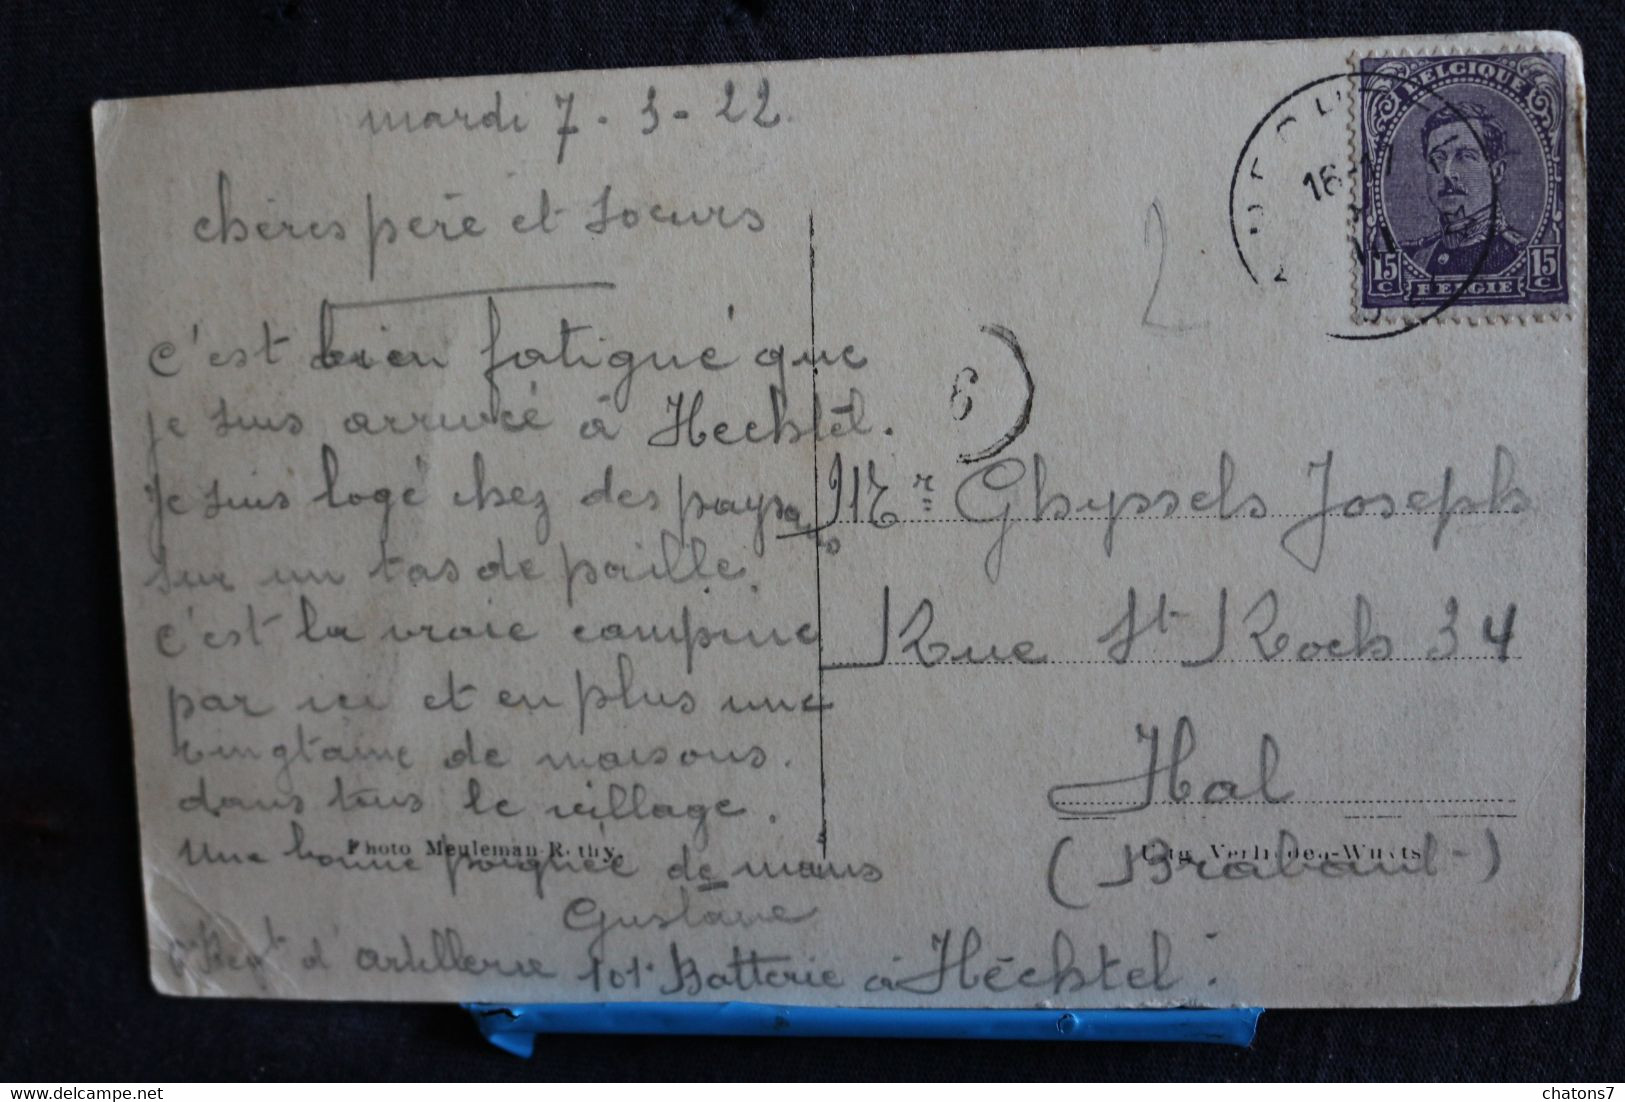 mardi 7-3-22.
chéres père et soeurs
c'est bien fatigué que
je suis arrivée à Hechtel.
Je suis logé chez des paysa
sur un tas de paille.
c'est la vraie campine
par ici et en plus une
vingtaine de maisons.
dans tous le village.
une bonne poignée de mains
Gustave
6e Regt d'artillerie 101e Batterie à Héchtel.
Photo Meuleman-Rethy.
BELGIQUE
15 c
15 c
BELGIE
16-17
2
6
Mr Ghyssels Joseph
Rue St Roch 34
Hal
(Brabant)
Uitg.
chatons7